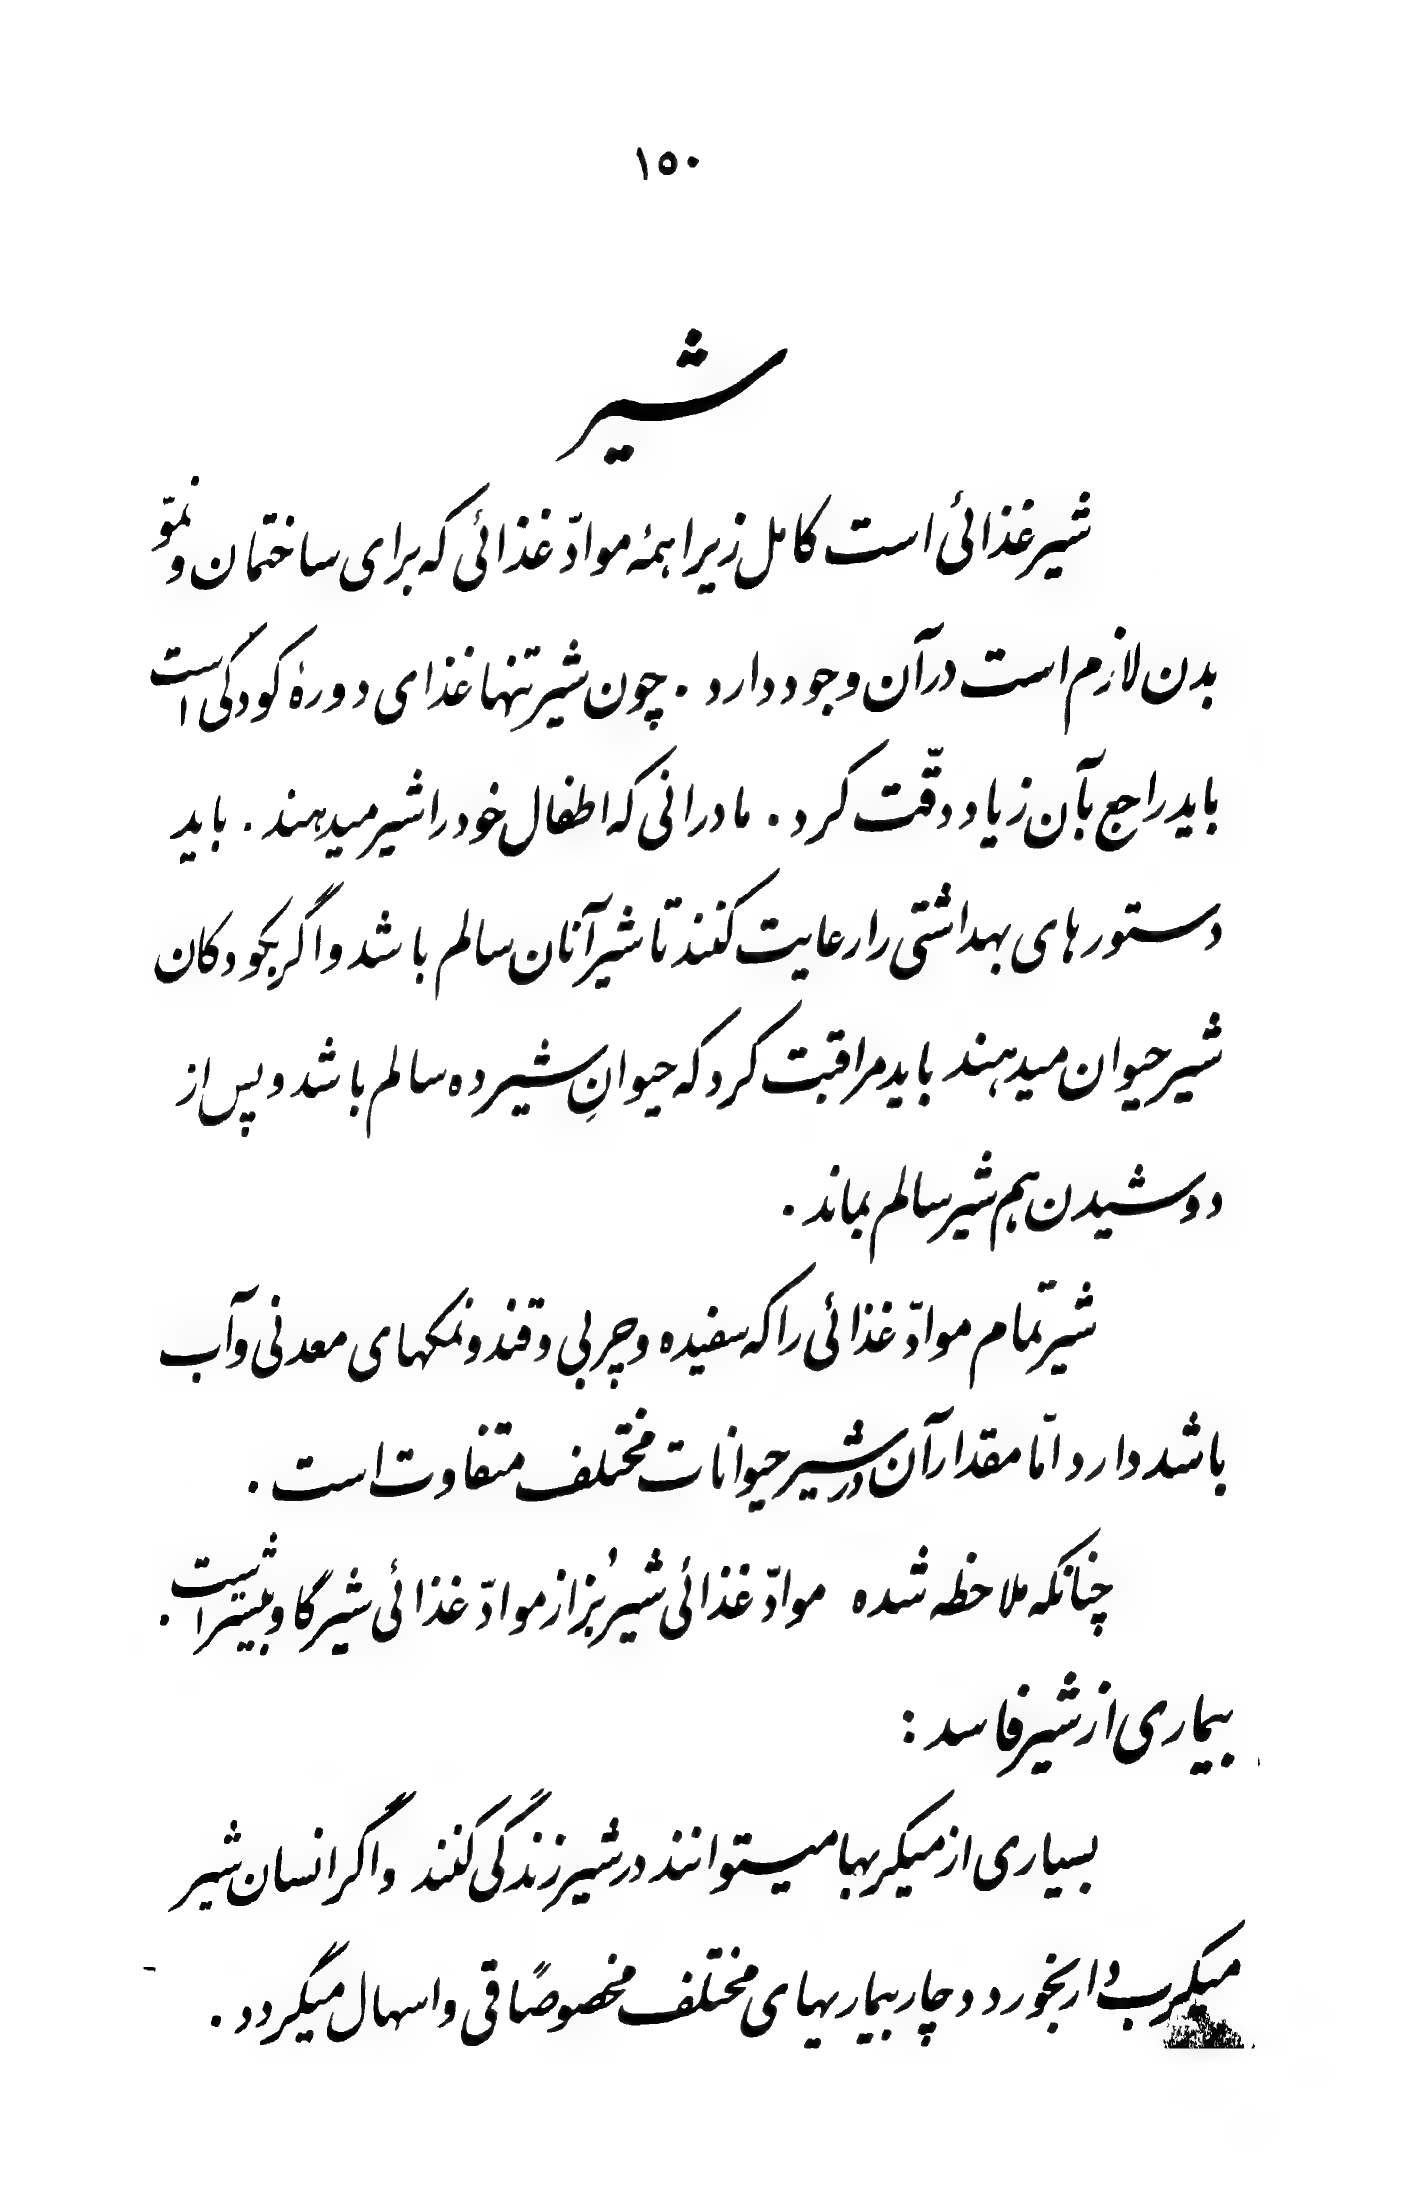 ۱۵۰
شیر
شیر غذائی است کامل زیرا همهٔ موادّ غذائی که برای ساختمان و نموّ
بدن لازم است در آن وجود دارد . چون شیر تنها غذای دورهٔ کودکی است
باید راجع بآن زیاد دقّت کرد . مادرانی که اطفال خود را شیر میدهند . باید
دستورهای بهداشتی را رعایت کنند تا شیر آنان سالم باشد و اگر بکودکان
شیر حیوان میدهند باید مراقبت کرد که حیوانِ شیرده سالم باشد و پس از
دوشیدن هم شیر سالم بماند .
شیر تمام موادّ غذائی را که سفیده و چربی و قند و نمکهای معدنی و آب
باشد دارد امّا مقدار آن در شیر حیوانات مختلف متفاوت است .
چنانکه ملاحظه شده موادّ غذائی شیر بُز از موادّ غذائی شیر گاو بیشتر است .
بیماری از شیر فاسد :
بسیاری از میکربها میتوانند در شیر زندگی کنند و اگر انسان شیر
میکرب دار بخورد دچار بیماریهای مختلف مخصوصاً قی و اسهال میگردد .